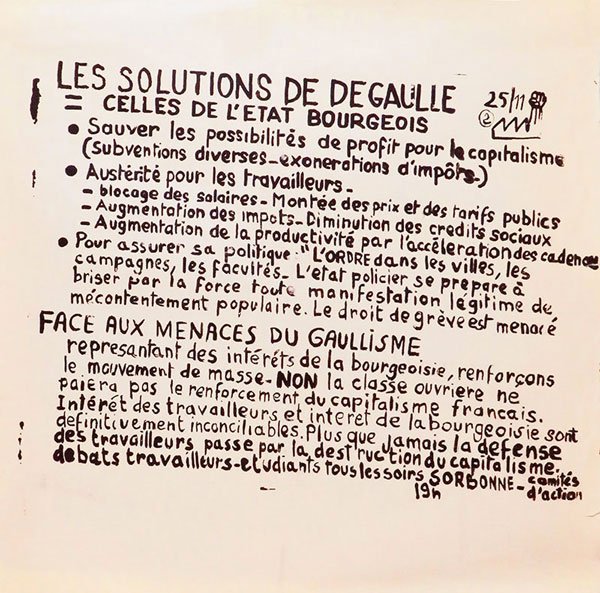 LES SOLUTIONS DE DEGAULLE
= CELLES DE L'ETAT BOURGEOIS
25/11
2
• Sauver les possibilités de profit pour le capitalisme
(Subventions diverses_exonerations d'impôts.)
• Austérité pour les travailleurs_
- blocage des salaires_Montée des prix et des tarifs publics
- Augmentation des impots_Diminution des credits sociaux
- Augmentation de la productivité par l'accélération des cadences
• Pour assurer sa politique: "L'ORDRE dans les villes, les
campagnes, les facultés_L'etat policier se prepare à
briser par la force toute manifestation légitime de
mécontentement populaire. Le droit de grève est menacé
FACE AUX MENACES DU GAULLISME
represantant des intérêts de la bourgeoisie, renforçons
le mouvement de masse_NON la classe ouvrière ne
paiera pas le renforcement du capitalisme francais.
Intérêt des travailleurs et interet de la bourgeoisie sont
definitivement inconciliables. Plus que jamais la défense
des travailleurs passe par la destruction du capitalisme.
debats travailleurs-etudiants tous les soirs SORBONNE_comités
19h d'action